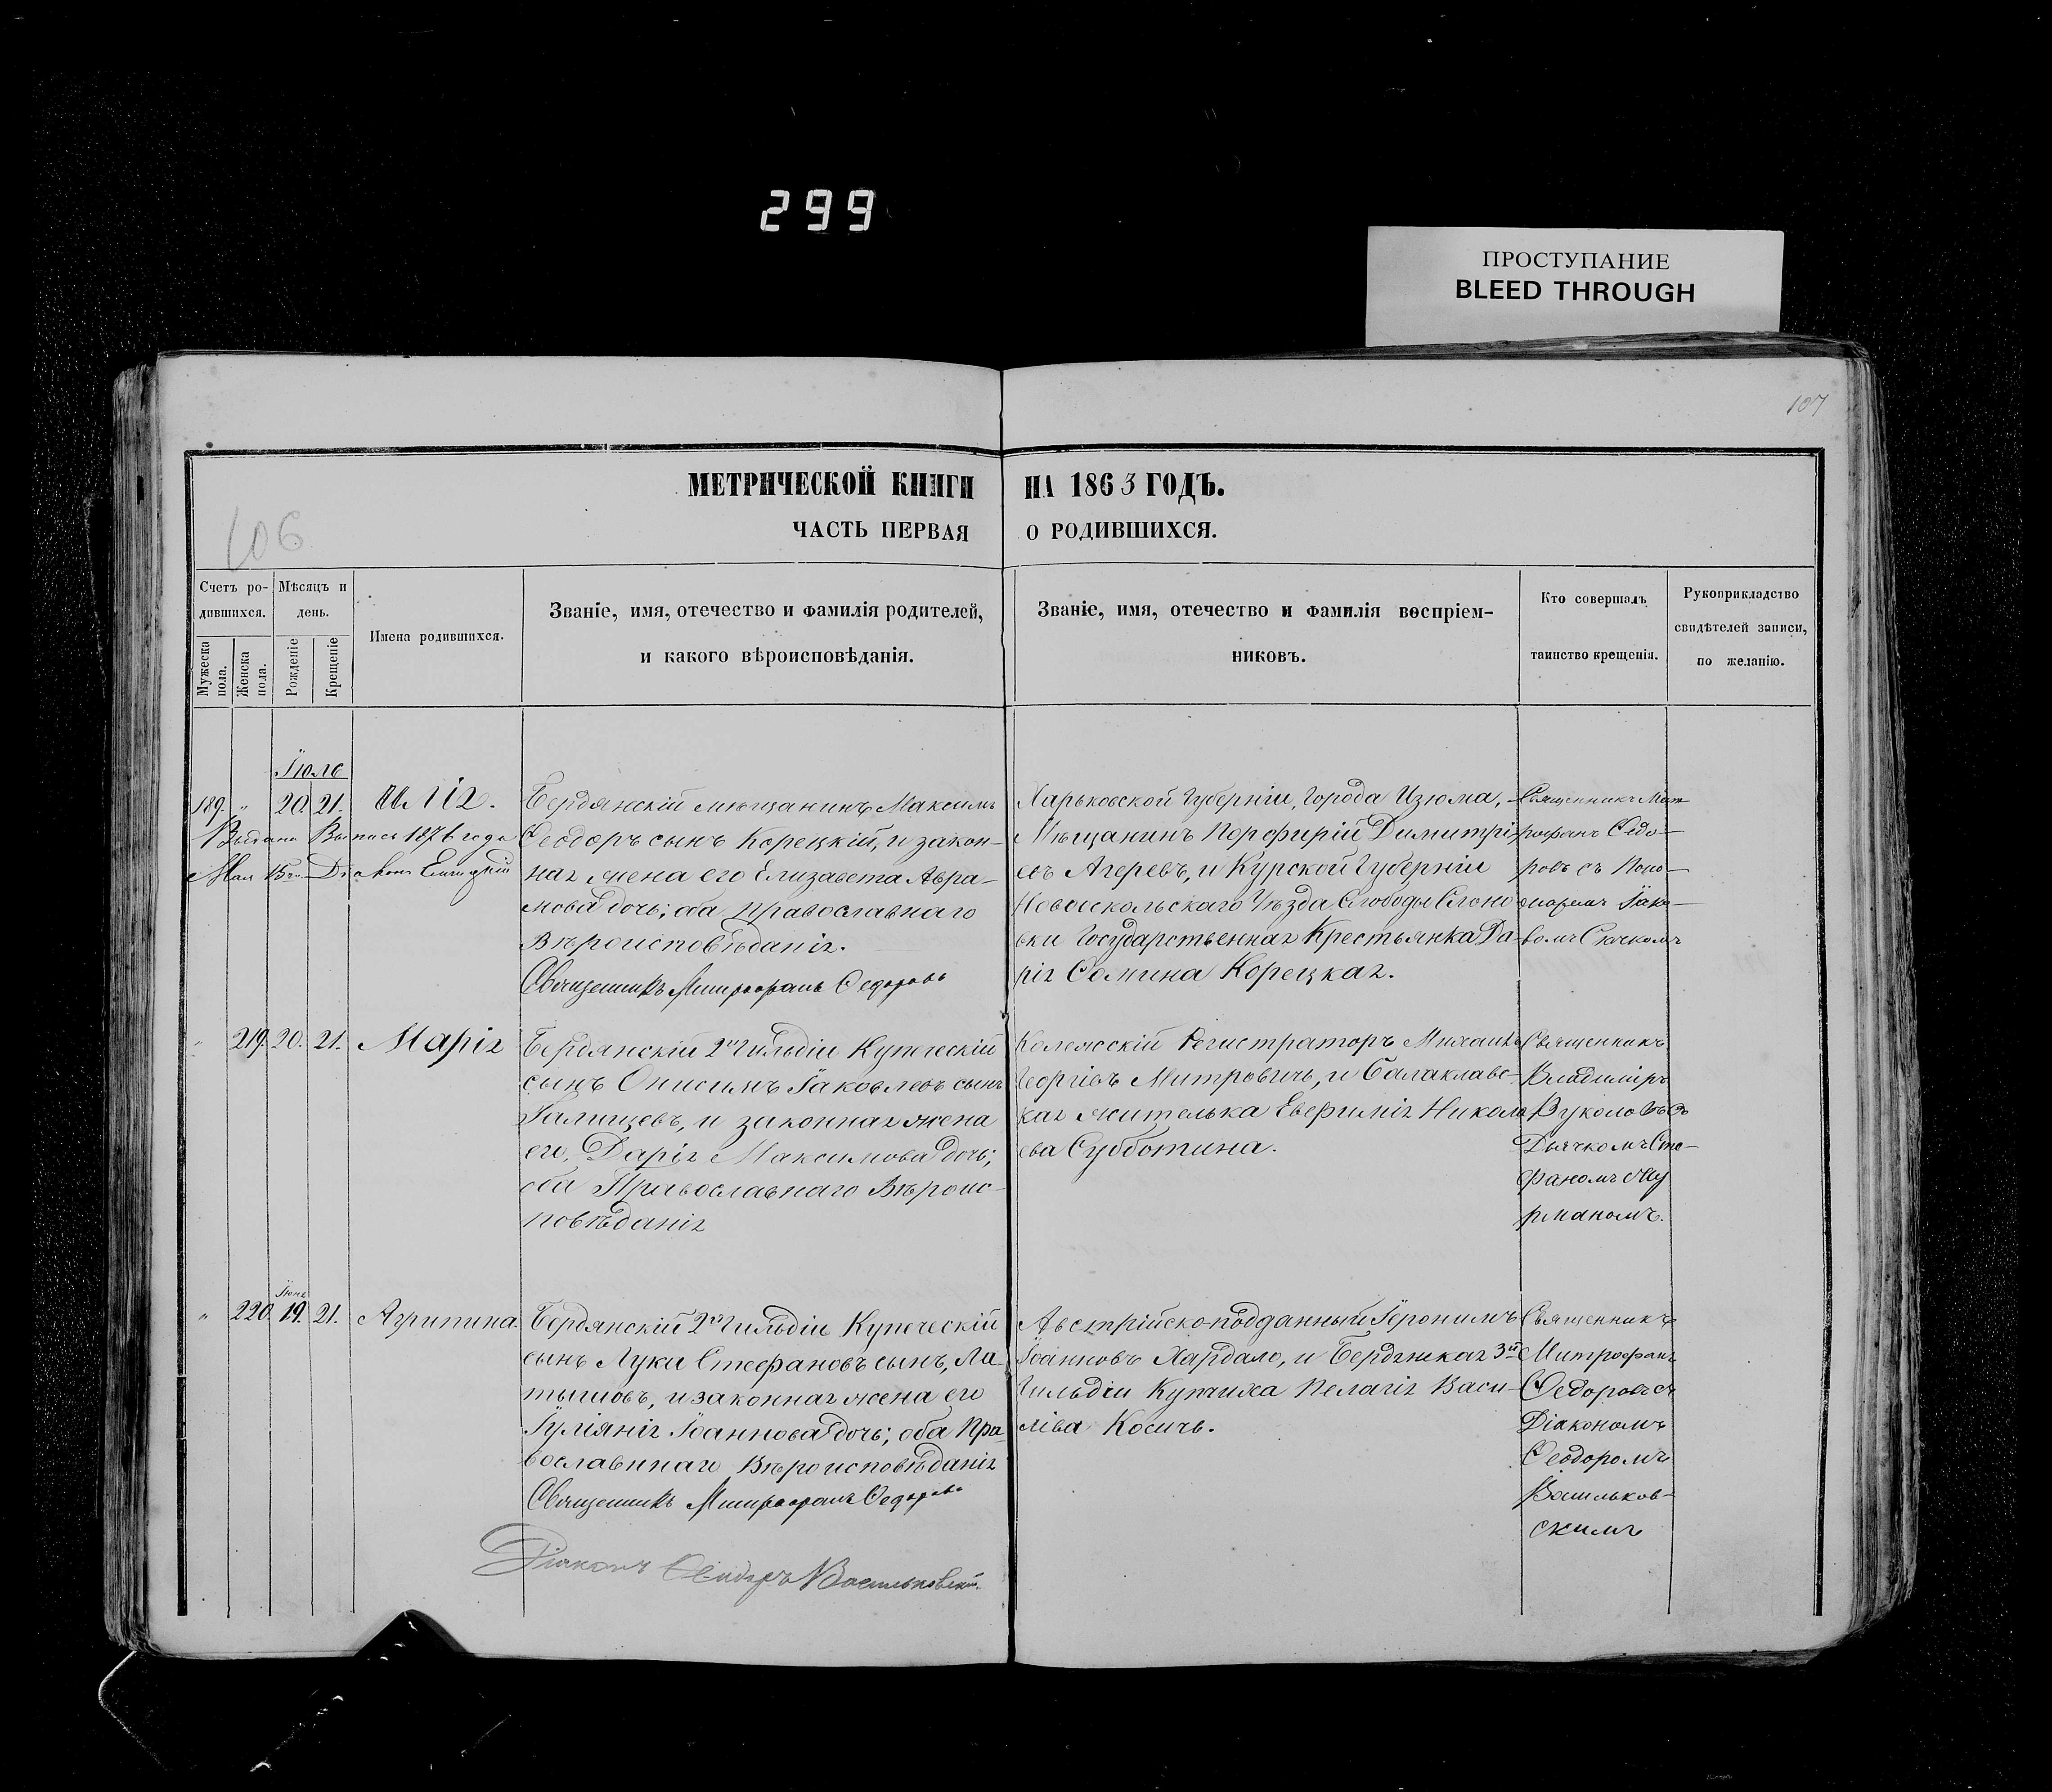 299
ПРОСТУПАНИЕ
BLEED THROUGH
107
106
МЕТРИЧЕСКОЙ КНИГИ НА 1863 ГОДЪ.
ЧАСТЬ ПЕРВАЯ О РОДИВШИХСЯ.
Счетъ родившихся.
Мужеска пола.
Женска пола.
Мѣсяцъ и день.
Рожденіе
Крещеніе
Имена родившихся.
Званіе, имя, отечество и фамилія родителей,
и какого вѣроисповѣданія.
Званіе, имя, отечество и фамилія воспріем-
никовъ.
Кто совершалъ
таинство крещенія.
Рукоприкладство
свидѣтелей записи,
по желанію.
Іюль
189. " 20. 21. Илія.
Бердянскій мѣщанинъ Максимъ
Феодоръ сынъ Корецкій, и закон-
ная жена его Елизавета Авра-
мова дочь; оба православнаго
Вѣроисповѣданія.
Священникъ Митрофанъ Федоровъ
Выдана Выпись 187 года
Мая Діаконъ
Харьковской Губерніи, Города Изюма,
Мѣщанинъ Порфирій Димитрі-
евъ Агеревъ, и Курской Губерніи
Новооскольскаго Уѣзда Слободы
вки Государственная Крестьянка Да-
рія Сомина Корецкая.
Священникъ Мит-
рофанъ Федо-
ровъ съ Поно-
маремъ Іако-
вомъ
" 219. 20. 21. Марія
Бердянскій 2й Гильдіи Купеческій
сынъ Онисимъ Іаковлевъ сынъ
Галищевъ, и законная жена
его, Дарія Максимова дочь;
оба Православнаго Вѣроис-
повѣданія
Колежскій Регистраторъ Михаилъ
Георгіевъ Митровичъ, и Балаклавс-
кая жителька Евфимія Никола
ева Субботина.
Священникъ
Владиміръ
Вуколовъ съ
Дьячкомъ Сте-
фаномъ Му
рманомъ.
Іюня
" 220. 19. 21. Агрипина.
Бердянскій 2й Гильдіи Купеческій
сынъ Лука Стефановъ сынъ, Ла-
тышовъ, и законная жена его
Іуліянія Іоаннова дочь; оба Пра-
вославннаго Вѣроисповѣданія
Священникъ Митрофанъ Федоровъ
Діаконъ Феодоръ Васильковскій.
Австрійскоподданный Іеронимъ
Іоанновъ Хардало, и Бердянская 3й
Гильдіи Купчиха Пелагія Васи-
ліва Косичъ.
Священникъ
Митрофанъ
Федоровъ съ
Діакономъ
Феодоромъ
Васильков-
скимъ